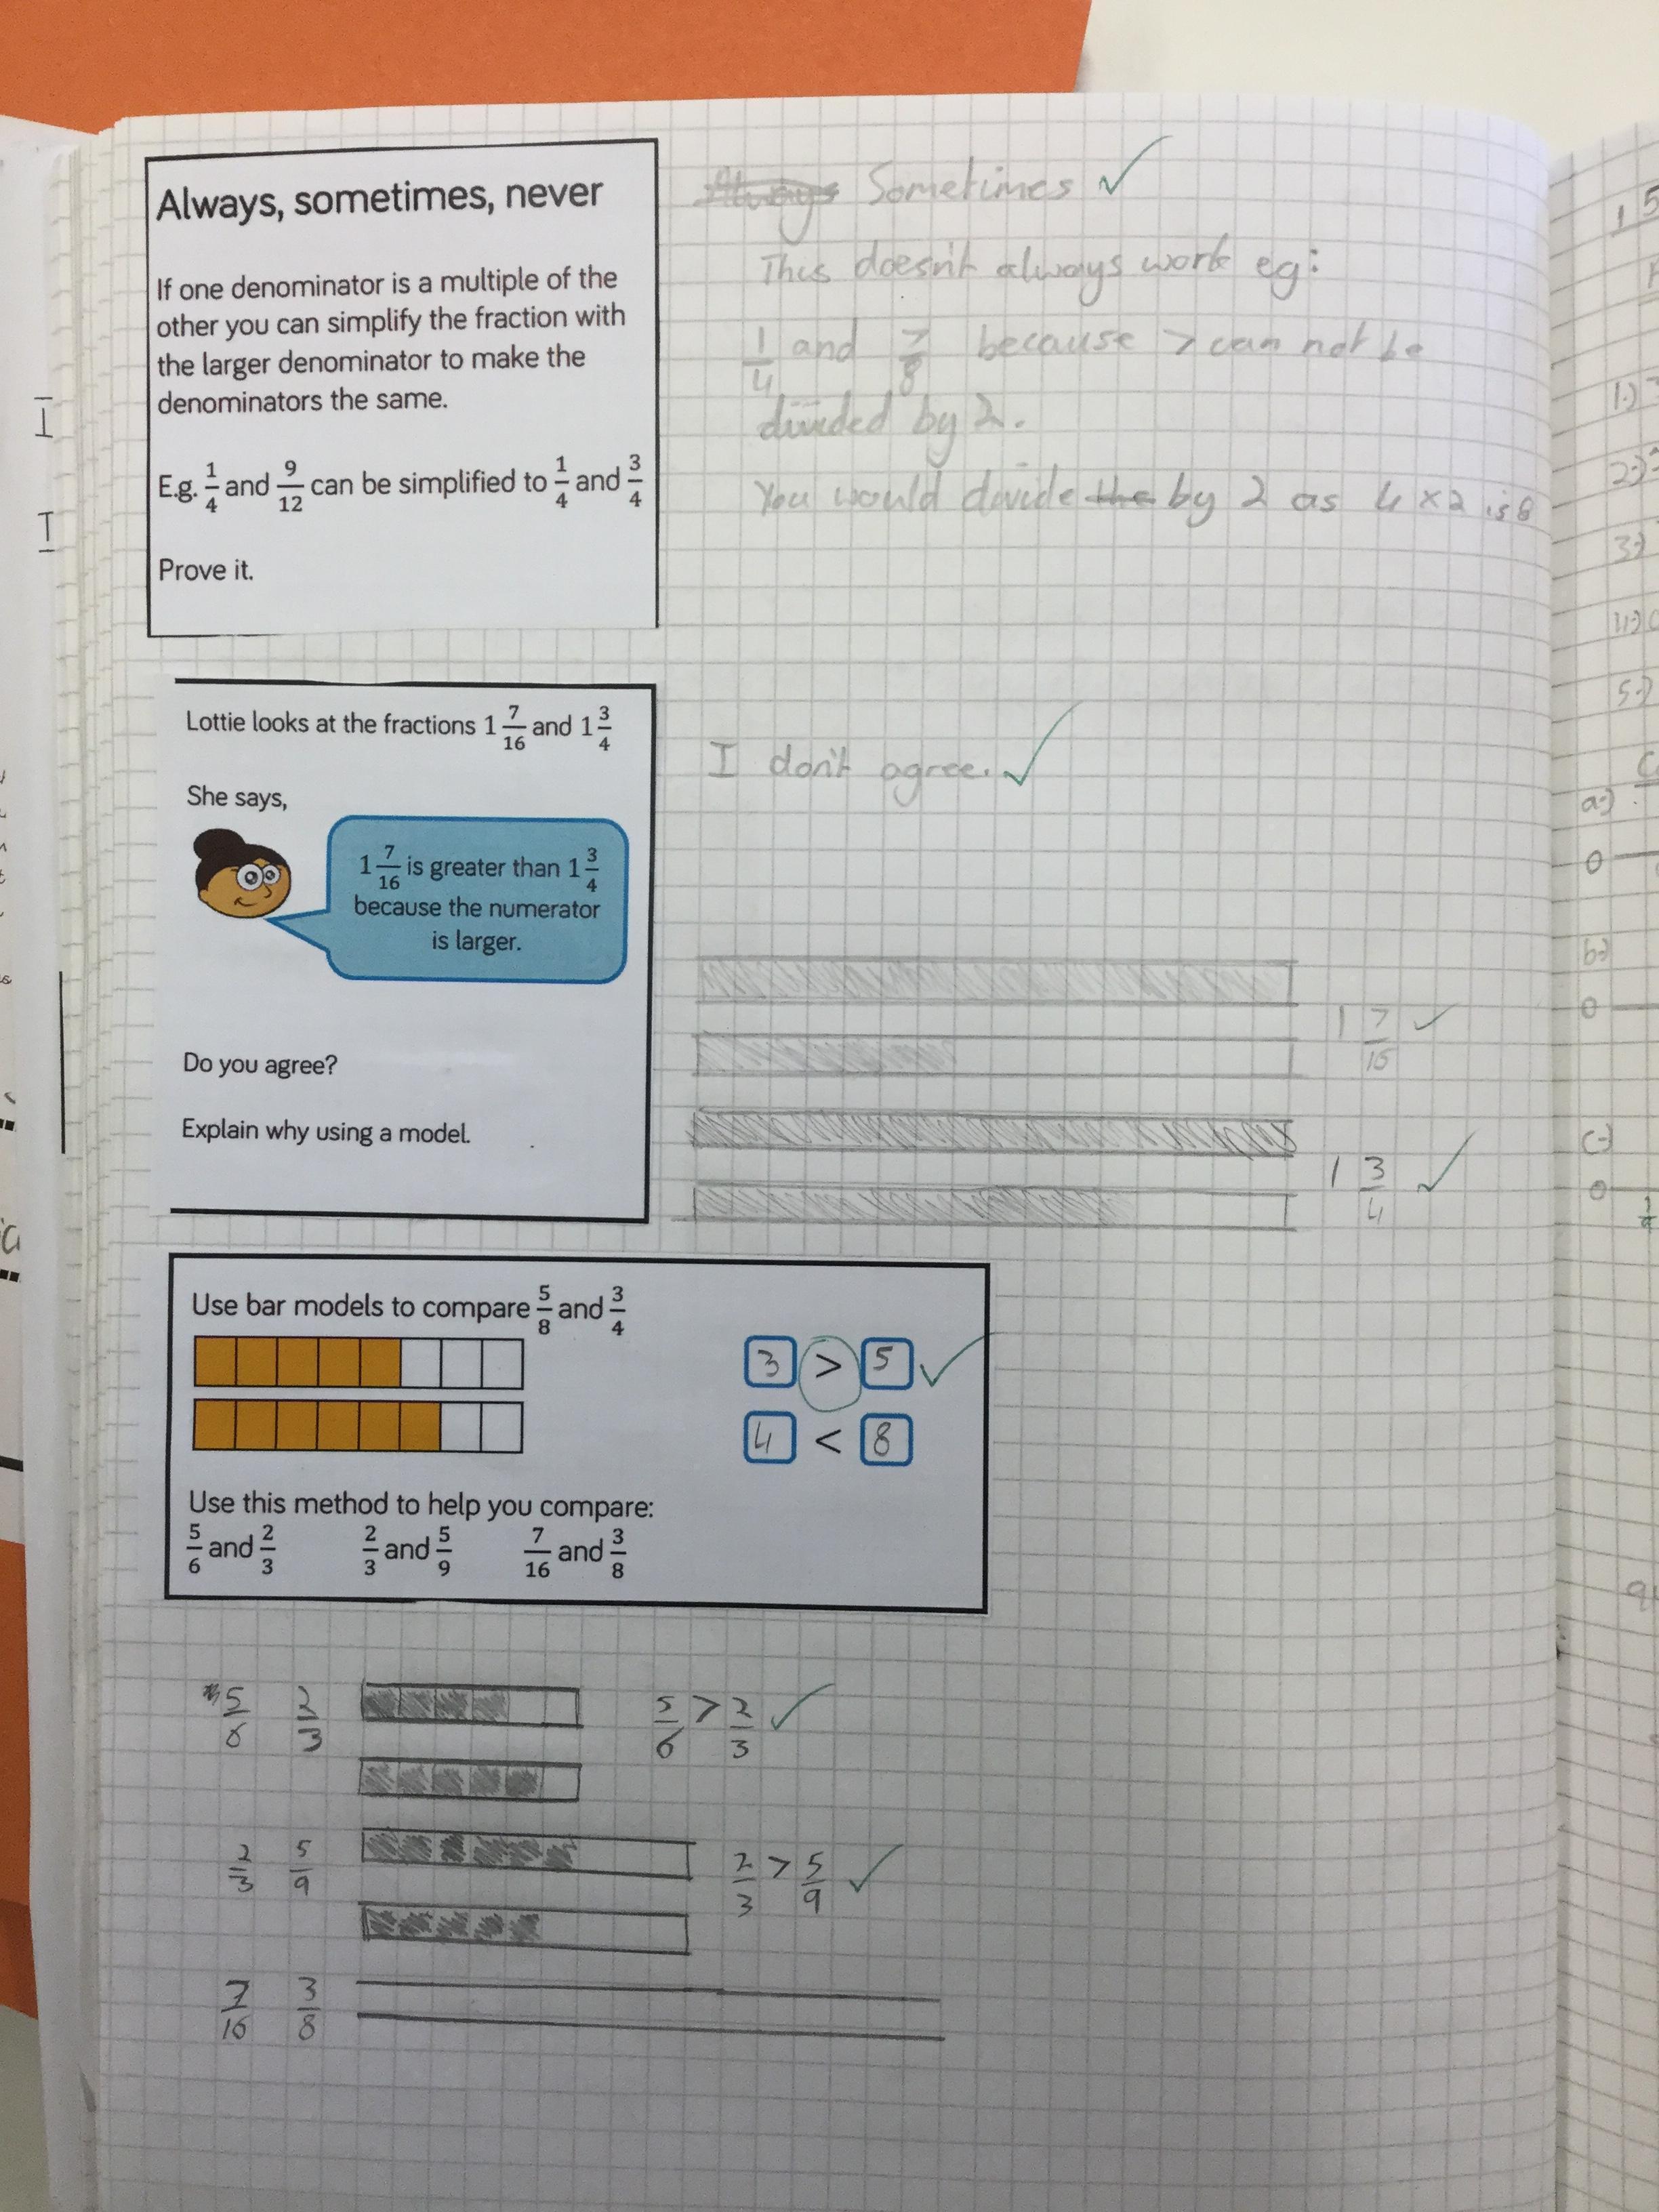 Always, sometimes, never
If one denominator is a multiple of the
other you can simplify the fraction with
the larger denominator to make the
denominators the same.
E.g. 1/4 and 9/12 can be simplified to 1/4 and 3/4
Prove it.
Always Sometimes ✓
This doesn't always work eg:
1/4 and 7/8 because 7 can not be
divided by 2.
You would divide the by 2 as 4 × 2 is 8
Lottie looks at the fractions 1 7/16 and 1 3/4
She says,
1 7/16 is greater than 1 3/4
because the numerator
is larger.
Do you agree?
Explain why using a model.
I don't agree. ✓
1 7/16 ✓
1 3/4 ✓
Use bar models to compare 5/8 and 3/4
3 > 5 ✓
4 < 8
Use this method to help you compare:
5/6 and 2/3 2/3 and 5/9 7/16 and 3/8
5/6 2/3 5/6 > 2/3 ✓
2/3 5/9 2/3 > 5/9 ✓
7/16 3/8
15
1.)
2.)
3.)
4.)
5.)
a.)
0
b.)
0
c.)
0